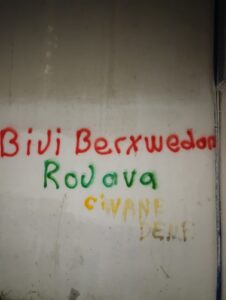 Biji Berxwedan
Rojava
CiWANE
DENE